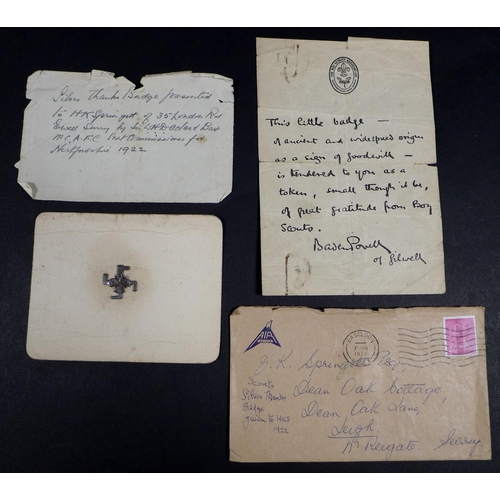 Silver Thanks Badge presented
to H K Springett of 35 London Rd
Ewell Surrey by Sir
M.C. A.F.C. Commissioner for
Hertfordshire 1922
This little badge —
of ancient and widespread origin
as a sign of goodwill —
is tendered to you as a
token, small though it be,
of great gratitude from Boy
Scouts.
Baden Powell
of Gilwell
AIP
BASILDON
1977
Springett Esq,
Dean Oak Cottage,
Dean Oak Lane,
Leigh,
Nr Reigate, Surrey
Scouts
Silver Thanks
Badge
given to HKS
1922